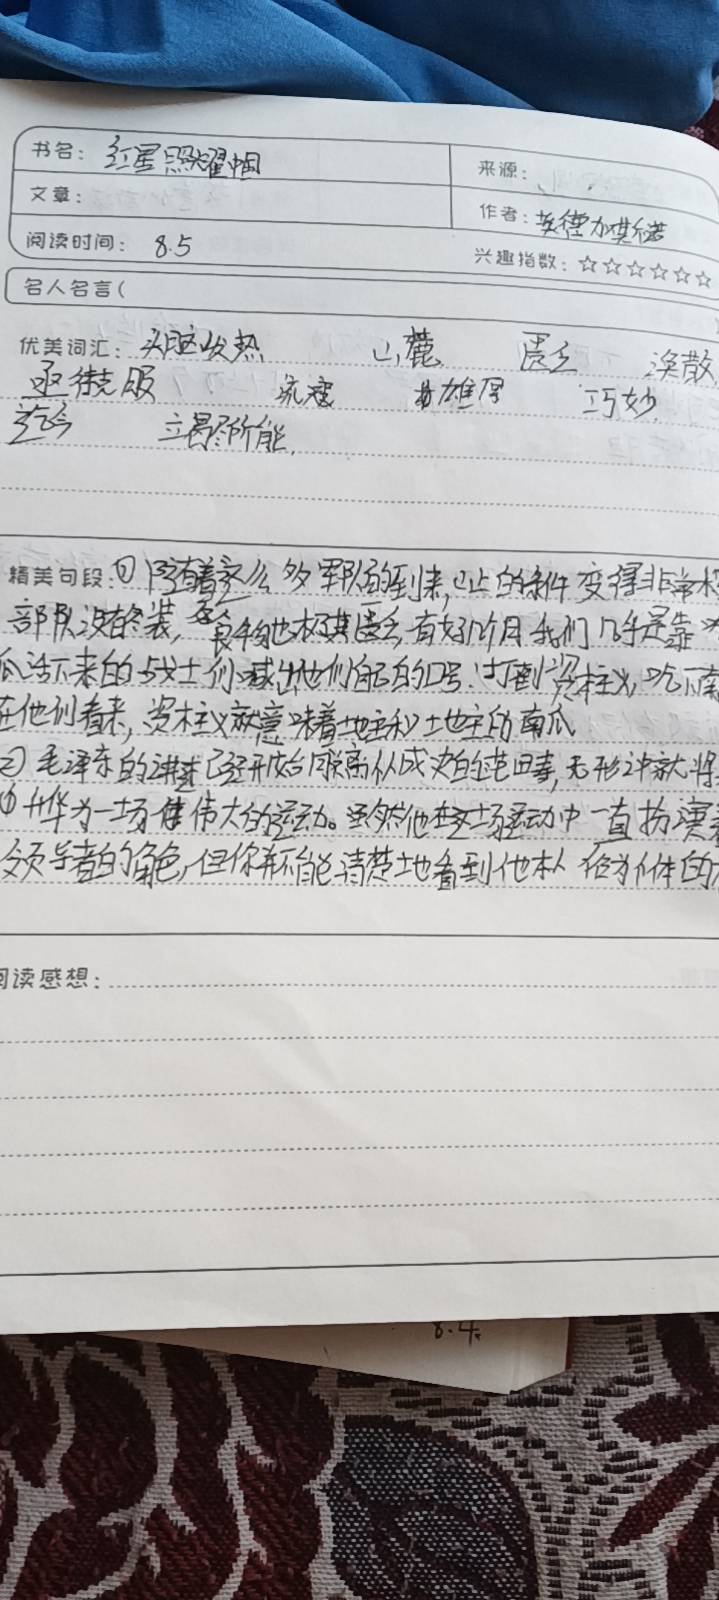 书名： 红星照耀中国
来源：
文章：
作者：埃德加斯诺
阅读时间： 8.5
兴趣指数：☆☆☆☆☆☆
名人名言(
优美词汇： 头脑发热 山麓 匮乏 涣散
亟待克服 雄厚 巧妙
竭尽所能
精美句段：① 随着这么多军队的到来，山上的条件变得非常
部队没有冬装，粮食也极其匮乏，有好几个月我们几乎是靠
瓜活下来的战士们喊出他们自己的口号：打倒资本主义，吃南
在他们看来，资本主义就意味着地主和土地主的南瓜
② 毛泽东的讲述已经开始脱离从成的往事，无形中就将
升华为一场 伟大的运动。虽然他在这场运动中一直扮演着
领导者的角色，但你并不能清楚地看到他本人作为个体的
阅读感想：
8.4